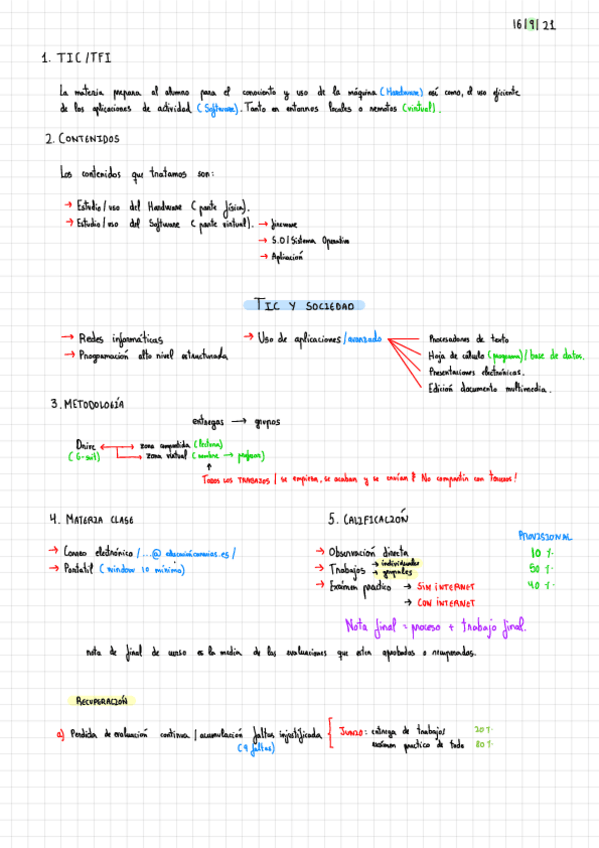 16|9|21
1. TIC/TFI
La materia prepara al alumno para el conociento y uso de la máquina (Hardware) así como, el uso eficiente
de las aplicaciones de actividad (Software). Tanto en entornos locales o remotos (virtual).
2. CONTENIDOS
Los contenidos que tratamos son:
→ Estudio/uso del Hardware (parte física).
→ Estudio/uso del Software (parte virtual). → firmware
→ S.O/Sistema Operativo
→ Aplicación
TIC Y SOCIEDAD
→ Redes informáticas → Uso de aplicaciones/avanzado Procesadores de texto
→ Programación alto nivel estructurada Hoja de cálculo (programa)/base de datos.
Presentaciones electrónicas.
Edición documento multimedia.
3. METODOLOGÍA
entregas → grupos
Drive ↔ zona compartida (lectura)
(G-suit) → zona virtual (nombre → profesor)
TODOS LOS TRABAJOS / se empieza, se acaban y se envían! No compartir con terceros!
4. MATERIA CLASE 5. CALIFICACIÓN
PROVISIONAL
→ Correo electrónico /...@ educacióncanarias.es/ → Observación directa 10 %
→ Portatil (window 10 mínimo) → Trabajos → individuales → grupales 50 %
→ Exámen practico → SIN INTERNET 40 %
→ CON INTERNET
Nota final = proceso + trabajo final.
nota de final de curso es la media de las evaluaciones que esten aprobadas o recuperadas.
RECUPERACIÓN
a) Perdida de evaluación continua / acumulación faltas injustificada JUNIO: entrega de trabajos 20 %
(9 faltas) exámen practico de todo 80 %